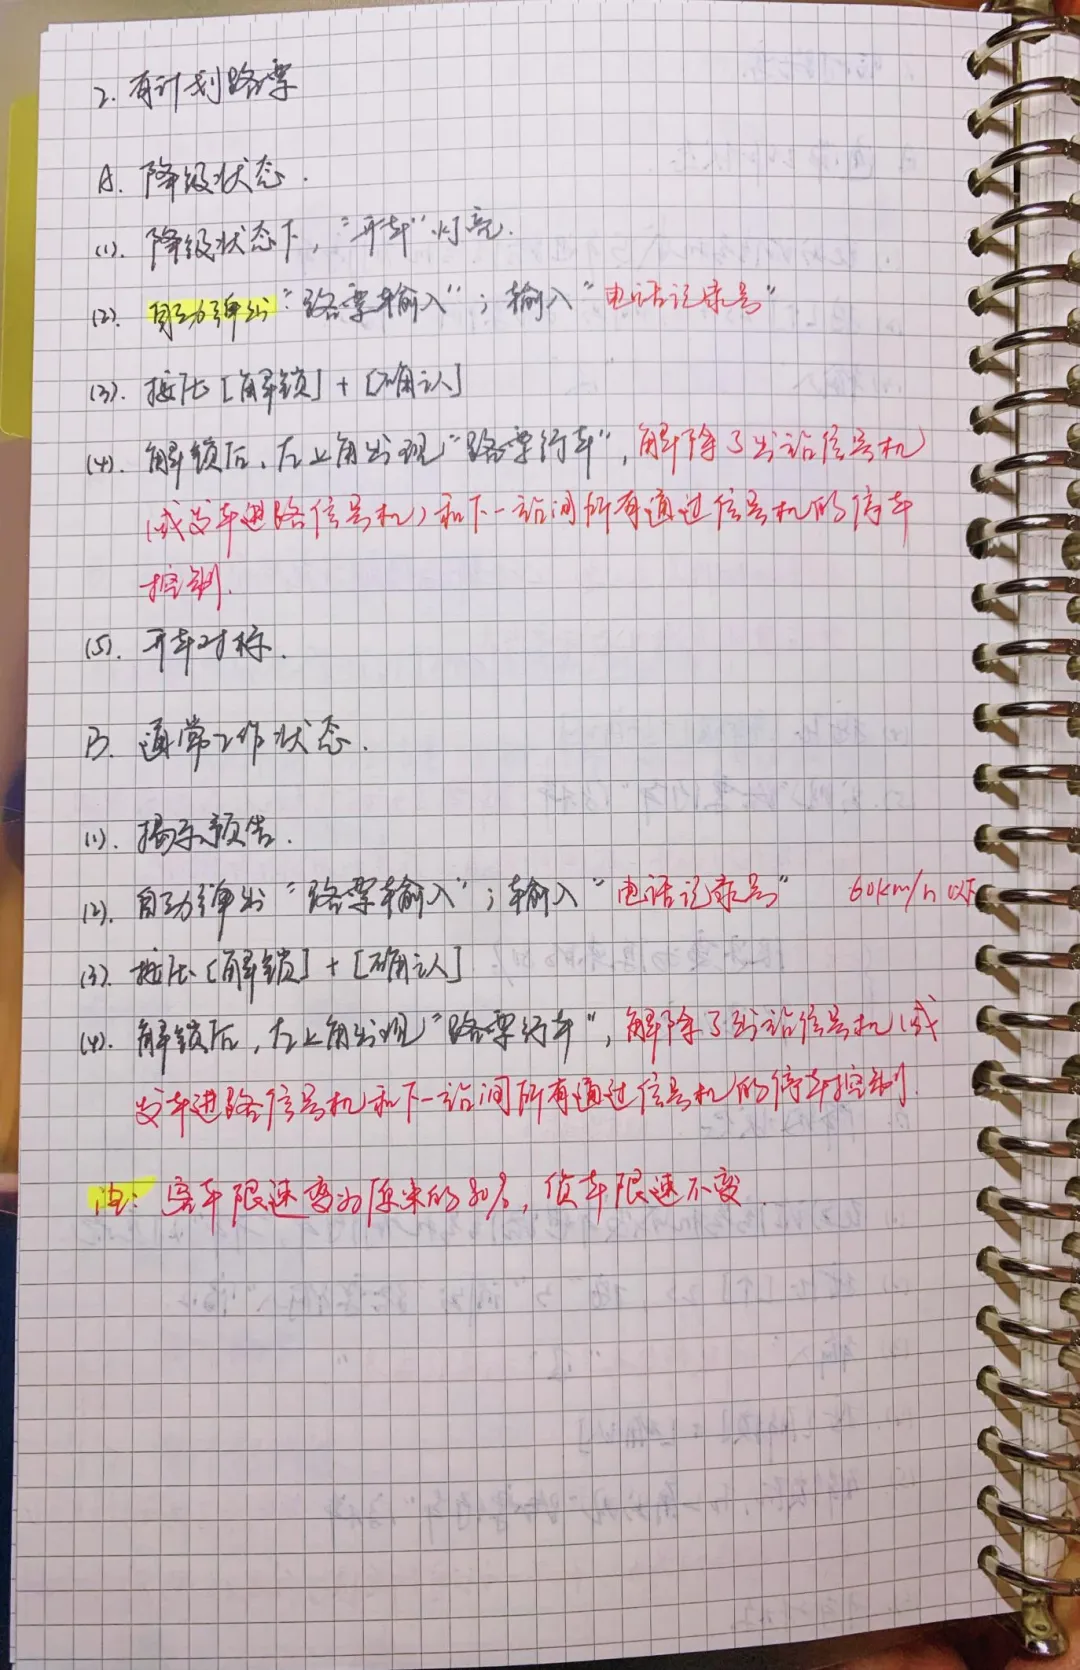 2. 有计划路票
A. 降级状态.
(1). 降级状态下，"开车"灯亮.
(2). 自动弹出"路票输入"；输入"电话记录号"
(3). 按压[解锁]+[确认]
(4). 解锁后、左上角出现"路票行车"，解除了出站信号机
(或发车进路信号机)和下一站间所有通过信号机的停车
控制.
(5). 开车对标.
B. 通常工作状态.
(1). 揭示预告.
(2). 自动弹出"路票输入"；输入"电话记录号" 60km/h以下
(3). 按压[解锁]+[确认]
(4). 解锁后，左上角出现"路票行车"，解除了出站信号机(或
发车进路信号机和下一站间所有通过信号机的停车控制.
注: 客车限速变为原来的80%，货车限速不变.